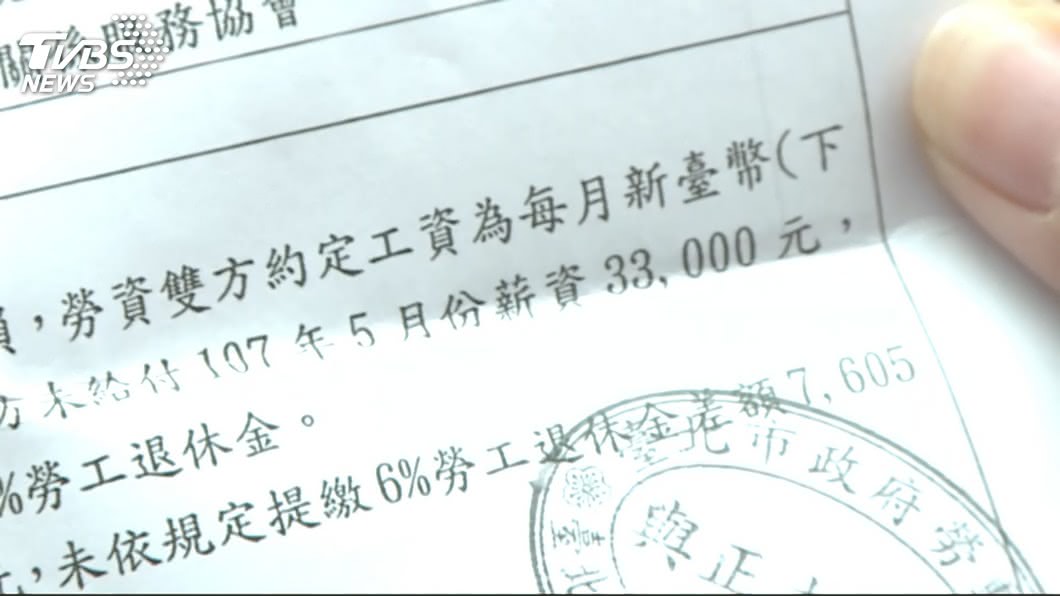 TVBS
NEWS
關係服務協會
，勞資雙方約定工資為每月新臺幣(下
方未給付107年5月份薪資33,000元，
%勞工退休金。
，未依規定提繳6%勞工退休金差額7,605
臺北市政府勞
與正本